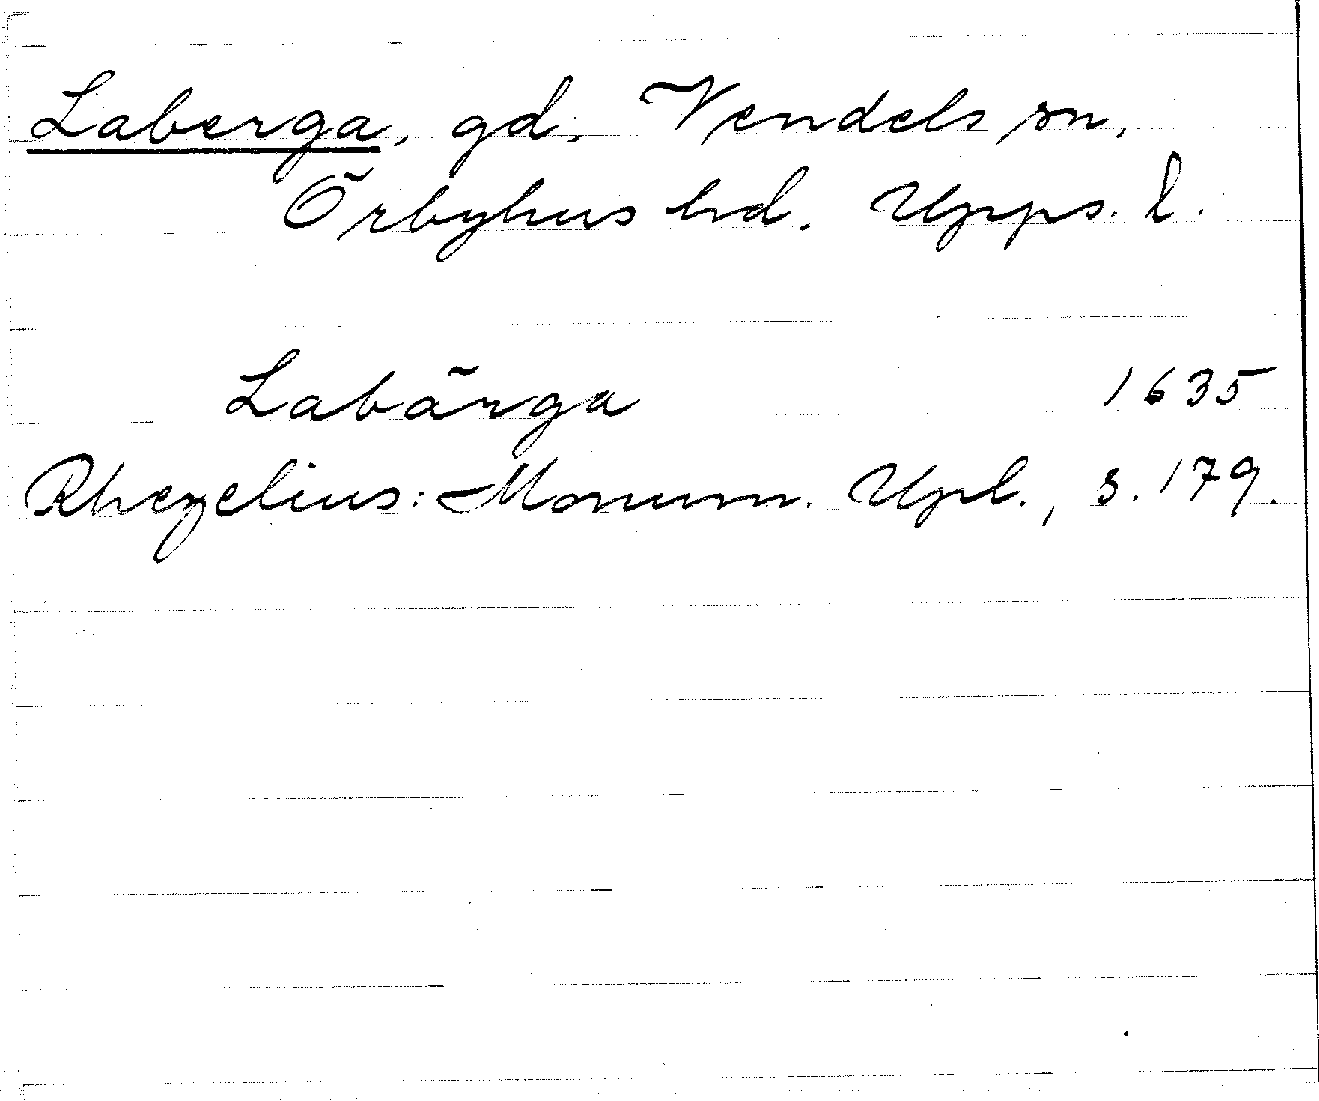 Laberga, gd. Vendels sn,
Örbyhus hd. Upps. l.
Labärga 1635
Rhezelius: Monum. Upl., s. 179.